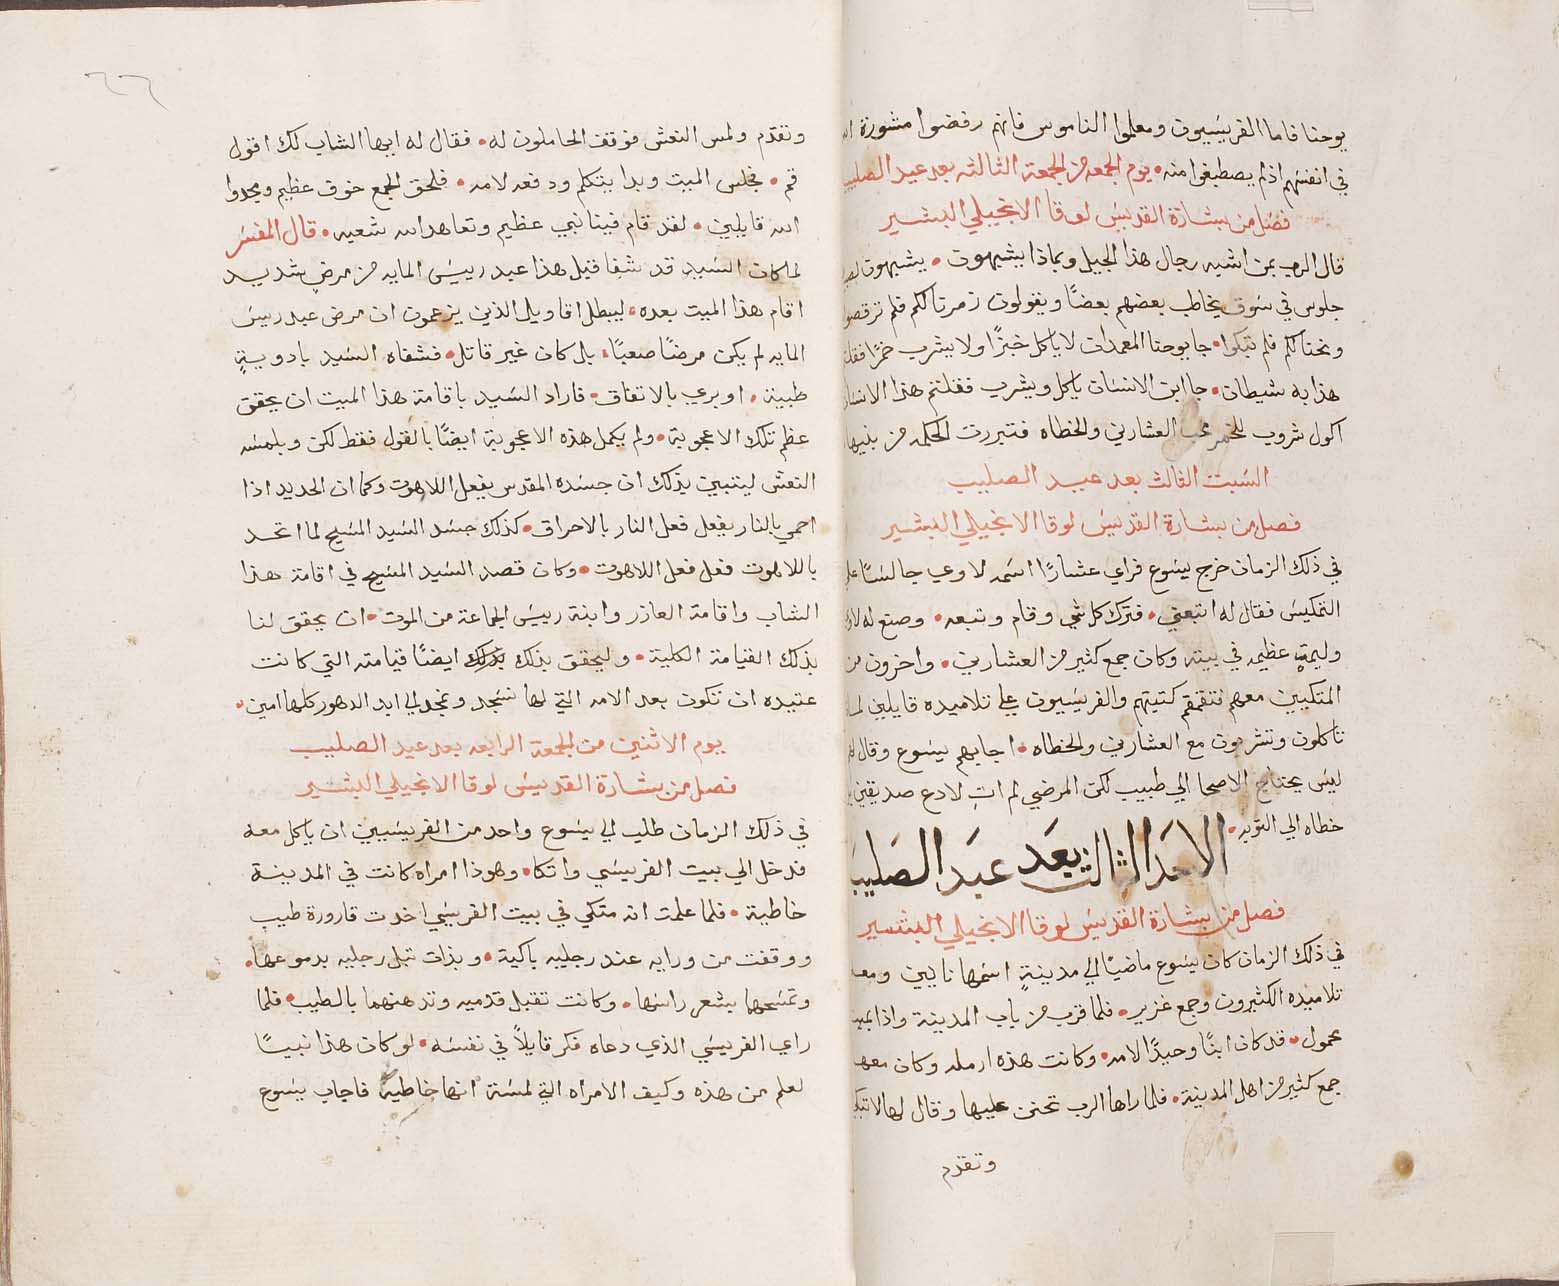 يوحنا فاما الفريسيون ومعلموا الناموس فانهم رفضوا مشورة
في انفسهم اذ لم يصطبغوا منه • يوم الجمعه من الجمعة الثالثه بعد عيد الصليب
فصل من بشارة القديس لوقا الانجيلي البشير
قال الرب بمن اشبه رجال هذا الجيل وبماذا يشبهون • يشبهون
جلوس في سوق يخاطب بعضهم بعضًا ويقولون زمرنا لكم فلم ترقصوا
ونحنا لكم فلم تبكوا • جا يوحنا المعمدان لا ياكل خبزًا ولا يشرب خمرًا فقلتم
هذا به شيطان • جا ابن الانسان ياكل ويشرب فقلتم هذا الانسان
اكول شروب للخمر محب العشارين والخطاه فتبررت الحكمه من بنيها
السبت الثالث بعد عيد الصليب
فصل من بشارة القديس لوقا الانجيلي البشير
في ذلك الزمان خرج يسوع فراي عشارًا اسمه لاوي جالسًا علي
التمكيس فقال له اتبعني • فترك كل شي وقام وتبعه • وصنع له لاوي
وليمةٍ عظيمه في بيته وكان جمع كثير من العشارين • واخرون من
المتكيين معهم فتقمقم كتبتهم والفريسيون علي تلاميده قايلين لما
تاكلون وتشربون مع العشارين والخطاه • اجابهم يسوع وقال لهم
ليس يحتاج الاصحا الي طبيب لكن المرضي لم اتِ لادع صديقين بل
خطاه الي التوبه •
الاحد الثالث بعد عيد الصليب
فصل من بشارة القديس لوقا الانجيلي البشير
في ذلك الزمان كان يسوع ماضيًا الي مدينةٍ اسمها نايين ومعه
تلاميده الكثيرون وجمع غزير • فلما قرب من باب المدينة واذا بميت
محمول • قد كان ابنًا وحيدًا لامه • وكانت هذه ارمله وكان معها
جمع كثير من اهل المدينة • فلما راها الرب تحنن عليها وقال لها لا تبكي
وتقدم
٦٦
وتقدم ولمس النعش فوقف الحاملون له • فقال له ايها الشاب لك اقول
قم • فجلس الميت وبدا يتكلم ودفعه لامه • فلحق الجمع خوف عظيم ومجدوا
الله قايلين • لقد قام فينا نبي عظيم وتعاهد الله شعبه • قال المفسر
لما كان السيد قد شفا قبل هذا عبد رييس المايه من مرض شديد
اقام هذا الميت بعده • ليبطل اقاويل الذين يزعمون ان مرض عبد رييس
المايه لم يكن مرضًا صعبًا • بل كان غير قاتل • فشفاه السيد بادويةٍ
طبية • او بري بالاتفاق • فاراد السيد باقامة هذا الميت ان يحقق
عظم تلك الاعجوبة • ولم يكمل هذه الاعجوبة ايضًا بالقول فقط لكن وبلمسه
النعش ليتبين بذلك ان جسده المقدس يفعل اللاهوت وكما ان الحديد اذا
احمي بالنار يفعل فعل النار بالاحراق • كذلك جسد السيد المسيح لما اتحد
باللاهوت فعل فعل اللاهوت • وكان قصد السيد المسيح في اقامة هذا
الشاب واقامة العازر وابنة رييس الجماعة من الموت • ان يحقق لنا
بذلك القيامة الكلية • وليحقق بذلك بذلك ايضًا قيامته التي كانت
عتيده ان تكون بعد الامه التي لها نسجد ونمجد الي ابد الدهور كلها امين •
يوم الاثنين من الجمعة الرابعه بعد عيد الصليب
فصل من بشارة القديس لوقا الانجيلي البشير
في ذلك الزمان طلب الي يسوع واحد من الفريسيين ان ياكل معه
فدخل الي بيت الفريسي واتكا • وهوذا امراه كانت في المدينة
خاطية • فلما علمت انه متكي في بيت الفريسي اخدت قارورة طيب
ووقفت من ورايه عند رجليه باكية • وبدات تبل رجليه بدموعها •
وتمسحها بشعر راسها • وكانت تقبل قدميه وتدهنهما بالطيب • فلما
راي الفريسي الذي دعاه فكر قايلاً في نفسه • لو كان هذا نبيًا
لعلم من هذه وكيف الامراه التي لمسته انها خاطية فاجاب يسوع